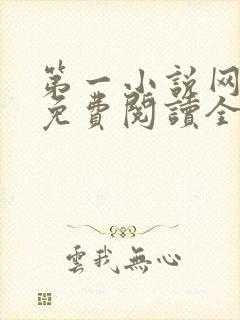 第一小说网
免費閱讀全
雲我無心